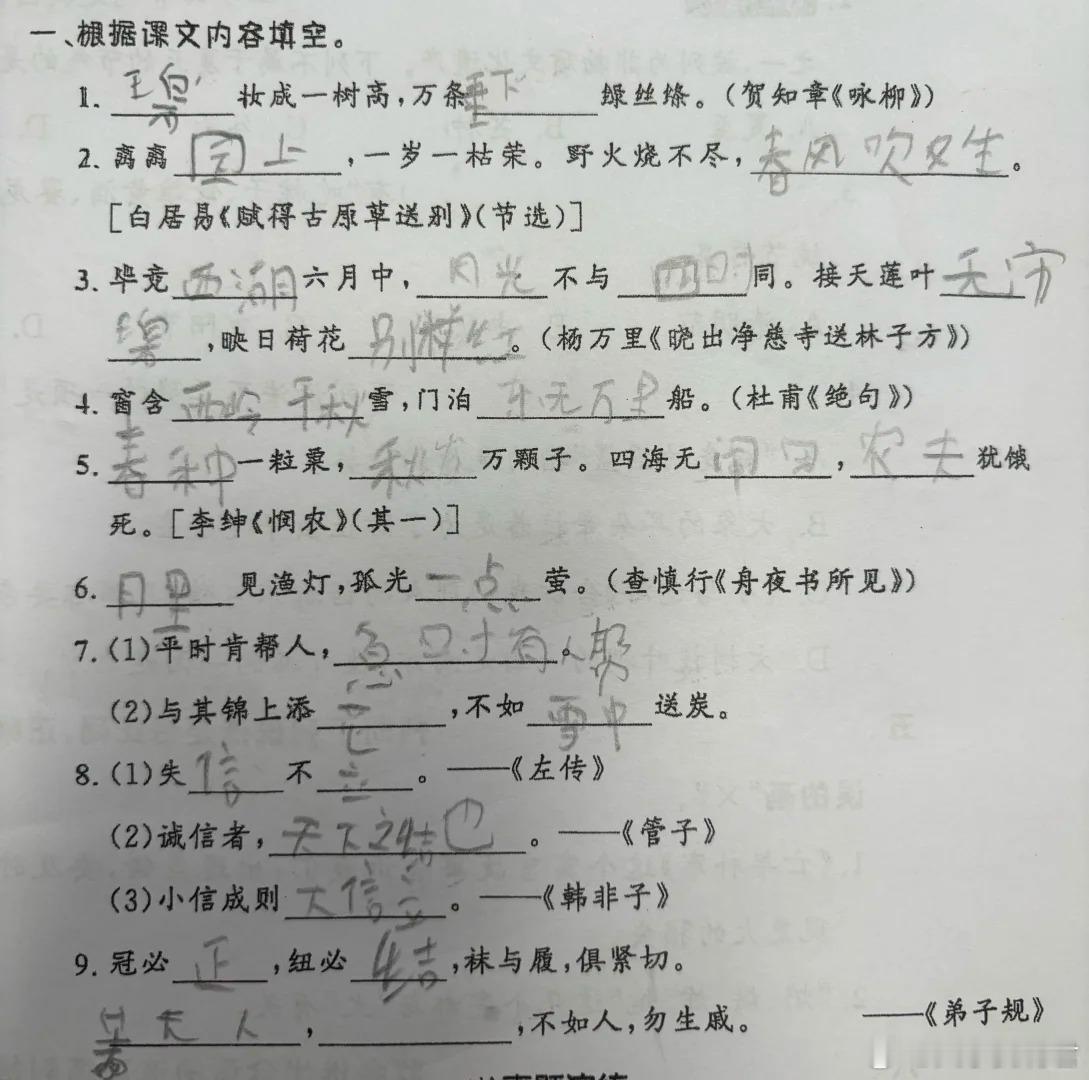 一、根据课文内容填空。
1. 碧 妆成一树高,万条垂下绿丝绦。(贺知章《咏柳》)
2. 离离 上,一岁一枯荣。野火烧不尽,春风吹又生。
[白居易《赋得古原草送别》(节选)]
3. 毕竟西湖六月中,月光不与四时同。接天莲叶无穷
碧,映日荷花别样 。(杨万里《晓出净慈寺送林子方》)
4. 窗含西岭千秋雪,门泊东无万里船。(杜甫《绝句》)
5. 春种一粒粟,秋 万颗子。四海无闲田,农夫犹饿
死。[李绅《悯农》(其一)]
6. 月黑见渔灯,孤光一点萤。(查慎行《舟夜书所见》)
7. (1)平时肯帮人,急 有人帮。
(2)与其锦上添 ,不如雪中送炭。
8. (1)失信不立。——《左传》
(2)诚信者,天下之结也。——《管子》
(3)小信成则大信立。——《韩非子》
9. 冠必正,纽必结,袜与履,俱紧切。
天人, ,不如人,勿生戚。 ——《弟子规》